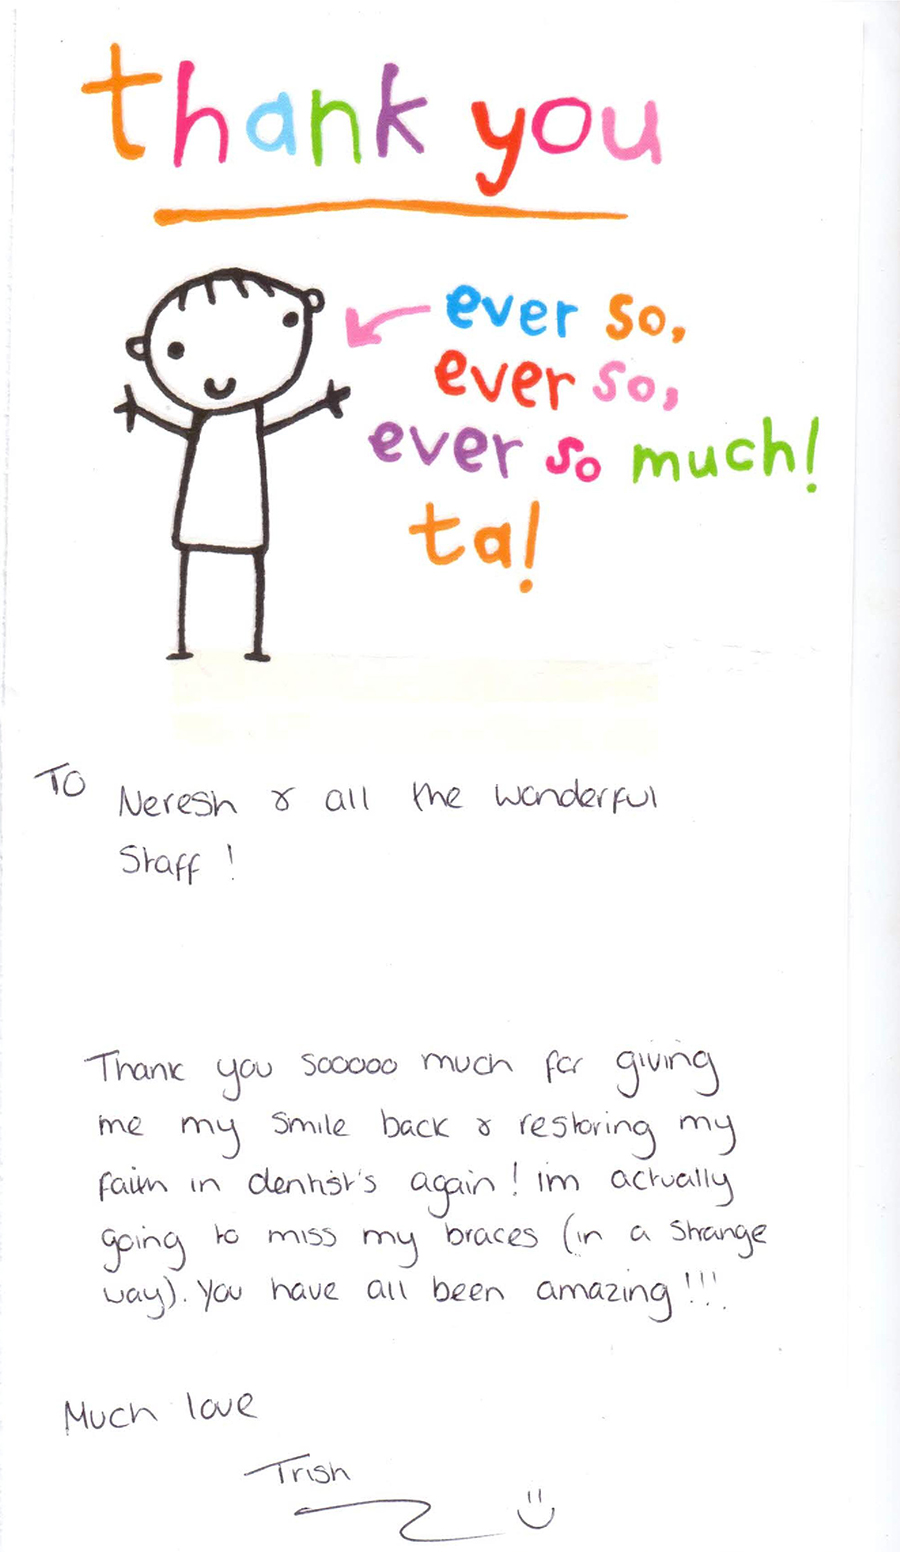 thank you
ever so,
ever so,
ever so much!
ta!
To
Neresh & all the wonderful
Staff !
Thank you sooooo much for giving
me my smile back & restoring my
faith in dentist's again! im actually
going to miss my braces (in a strange
way). You have all been amazing!!!
Much love
Trish